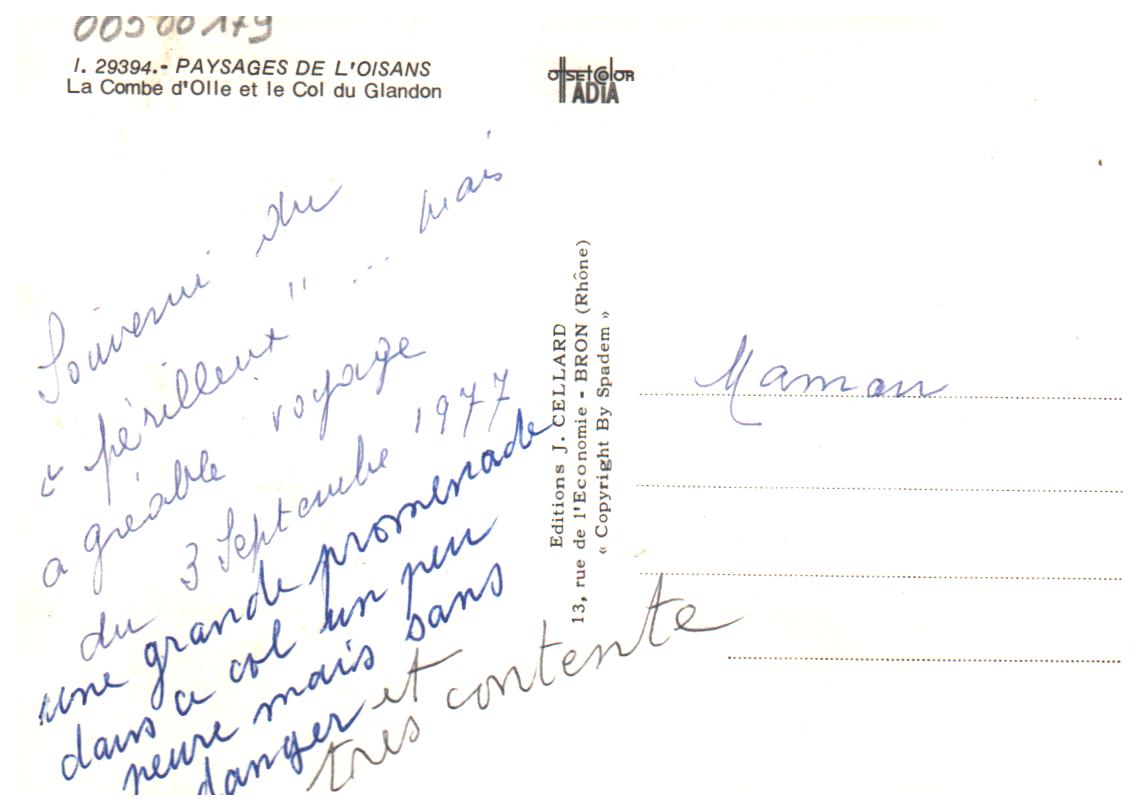 00500179
I. 29394.- PAYSAGES DE L'OISANS
La Combe d'Olle et le Col du Glandon
OffsetColor
IADIA
Souvenir du
"périlleux" ... mais
agréable voyage
du 3 Septembre 1977
une grande promenade
dans ce col un peu
peure mais sans
danger et
tres contente
Editions J. CELLARD
13, rue de l'Economie - BRON (Rhône)
« Copyright By Spadem »
Maman